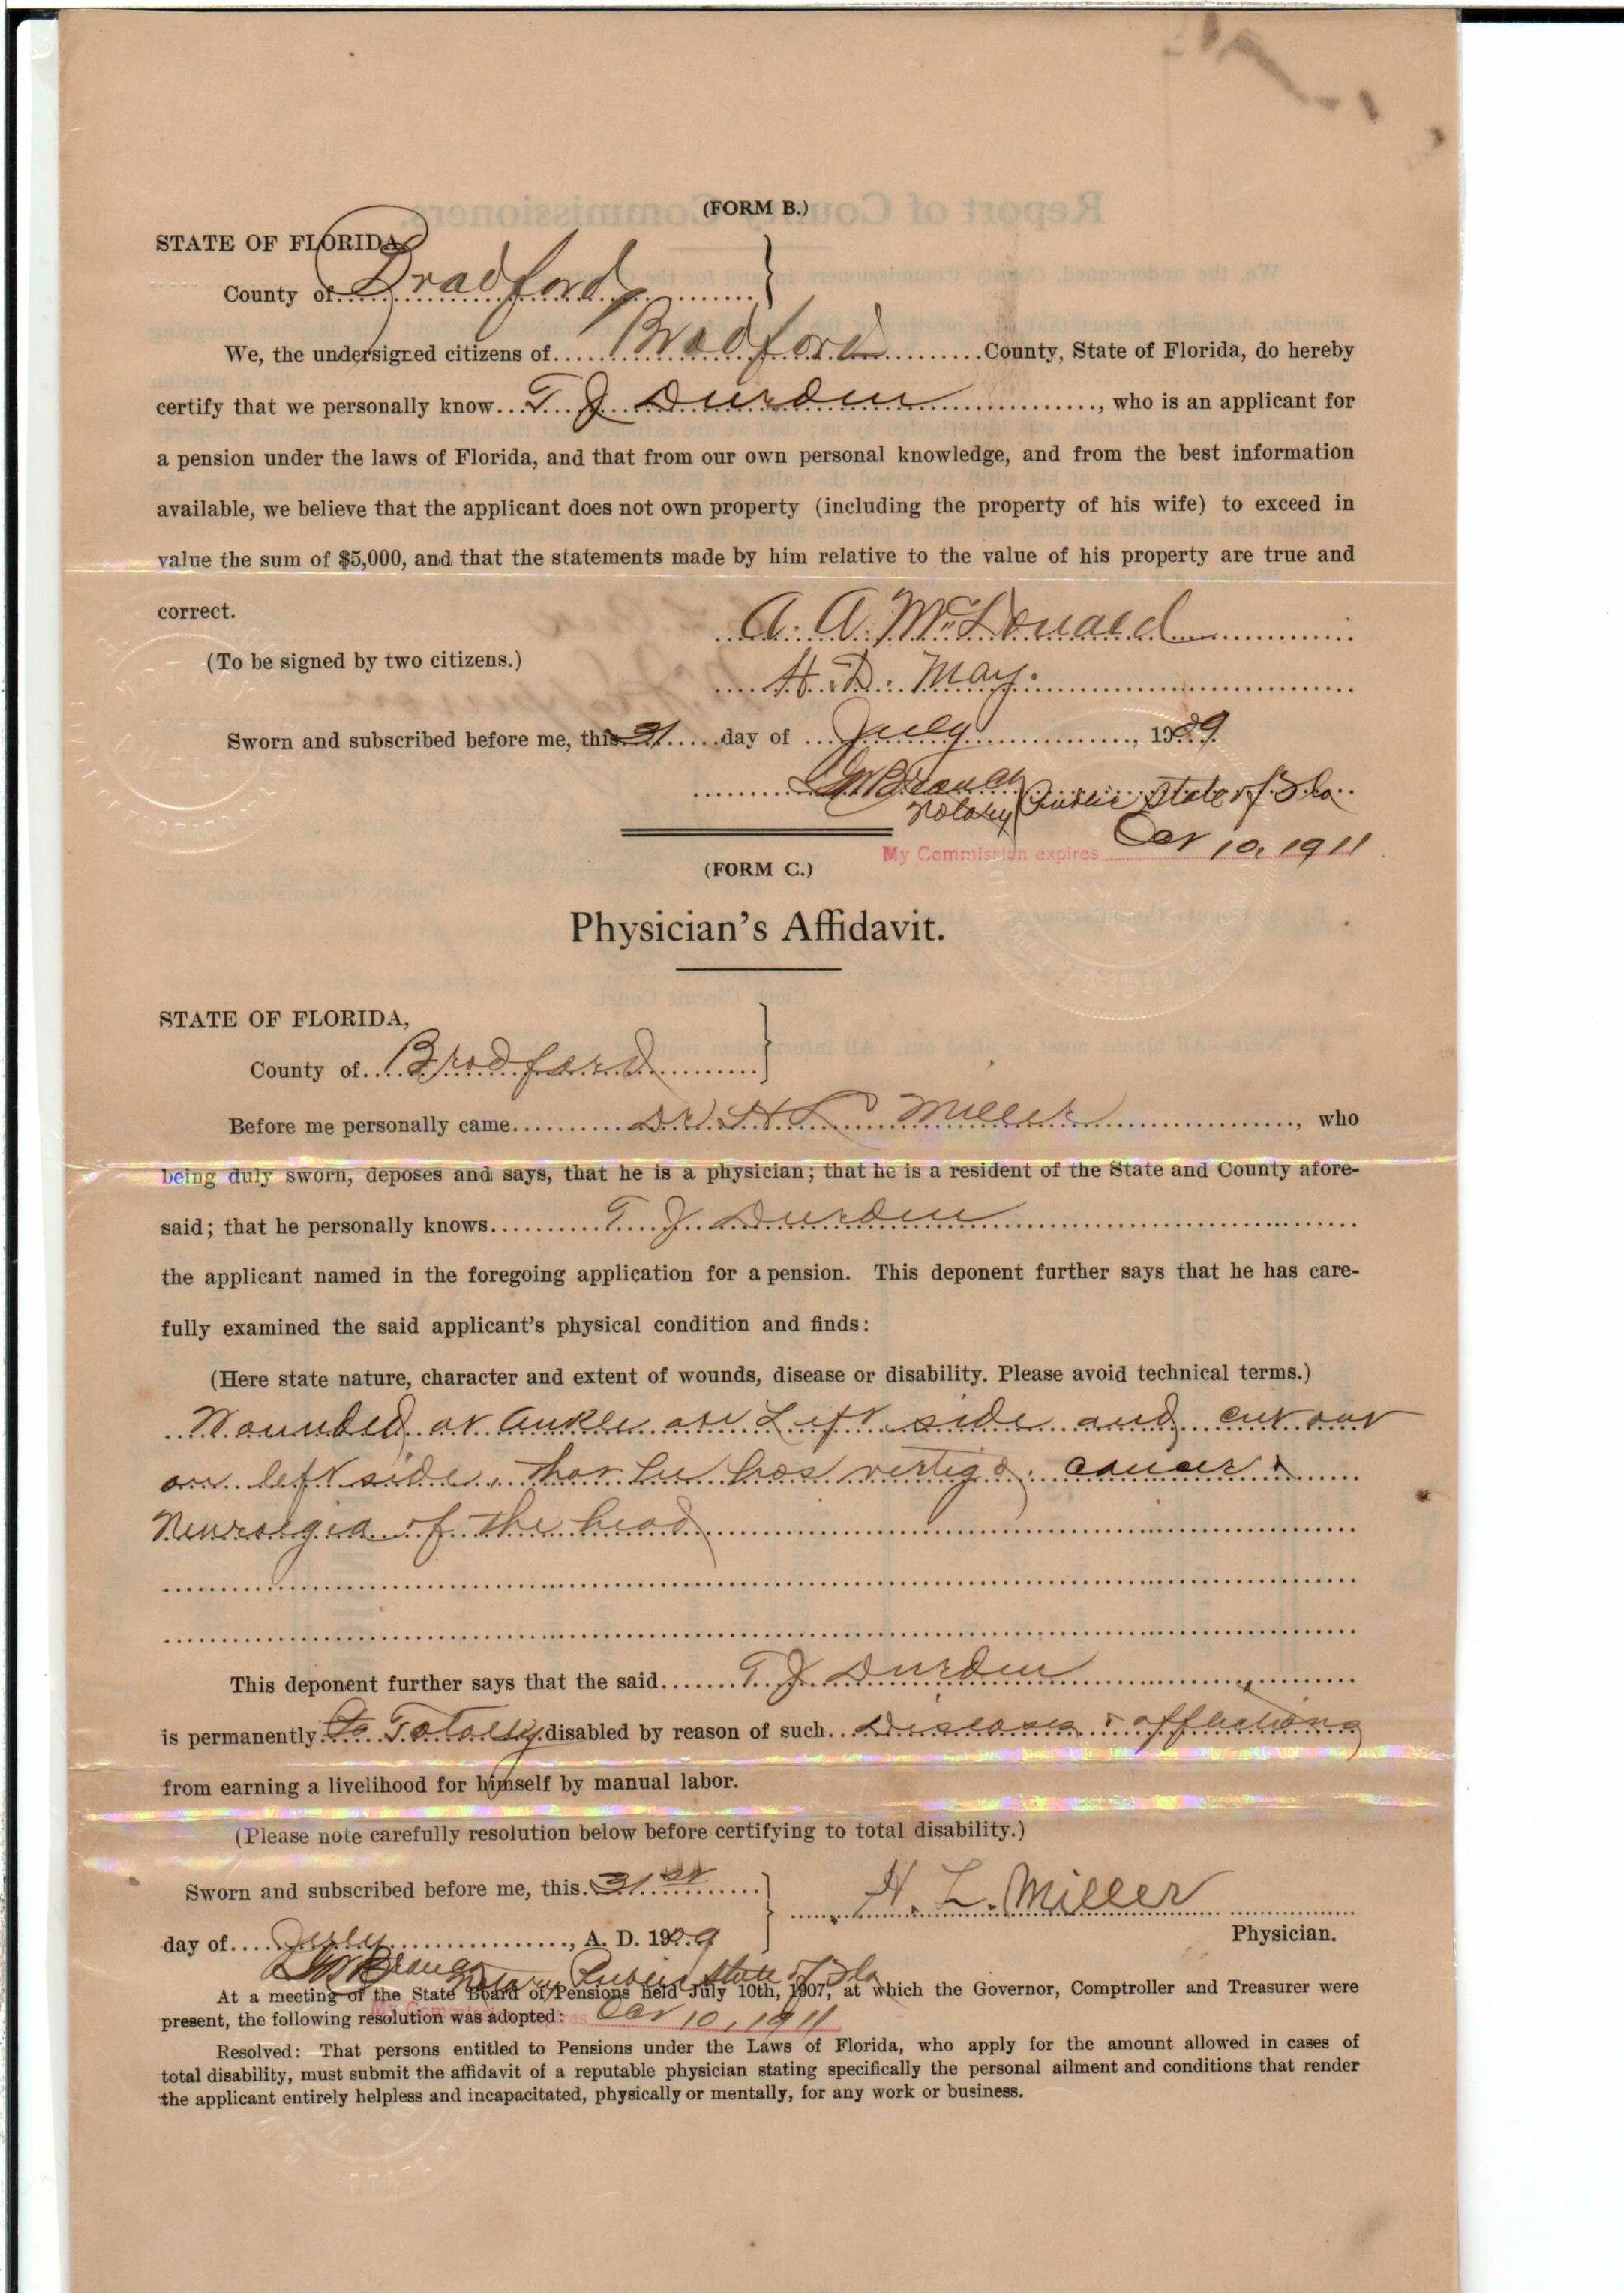 (FORM B.)
STATE OF FLORIDA,
County of Bradford
We, the undersigned citizens of Bradford County, State of Florida, do hereby
certify that we personally know T J Durden, who is an applicant for
a pension under the laws of Florida, and that from our own personal knowledge, and from the best information
available, we believe that the applicant does not own property (including the property of his wife) to exceed in
value the sum of $5,000, and that the statements made by him relative to the value of his property are true and
correct.
A. A. McDonald
(To be signed by two citizens.)
H. D. May.
Sworn and subscribed before me, this 31 day of July, 1909
Notary Public State of Fla.
My Commission expires Oct 10, 1911
(FORM C.)
Physician's Affidavit.
STATE OF FLORIDA,
County of Bradford
Before me personally came Dr. H L Miller, who
being duly sworn, deposes and says, that he is a physician; that he is a resident of the State and County afore-
said; that he personally knows T. J Durden
the applicant named in the foregoing application for a pension. This deponent further says that he has care-
fully examined the said applicant's physical condition and finds:
(Here state nature, character and extent of wounds, disease or disability. Please avoid technical terms.)
Wounded at Ankle on Left side and cut out
on left side, that he has vertigo. cancer &
Neuralgia of the head
This deponent further says that the said T. J Durden
is permanently & Totally disabled by reason of such Diseases & afflictions
from earning a livelihood for himself by manual labor.
(Please note carefully resolution below before certifying to total disability.)
Sworn and subscribed before me, this 31st
H. L. Miller
day of July, A. D. 1909
Physician.
Notary Public State of Fla
At a meeting of the State Board of Pensions held July 10th, 1907, at which the Governor, Comptroller and Treasurer were
present, the following resolution was adopted:
My Commission expires Oct 10, 1911
Resolved: That persons entitled to Pensions under the Laws of Florida, who apply for the amount allowed in cases of
total disability, must submit the affidavit of a reputable physician stating specifically the personal ailment and conditions that render
the applicant entirely helpless and incapacitated, physically or mentally, for any work or business.